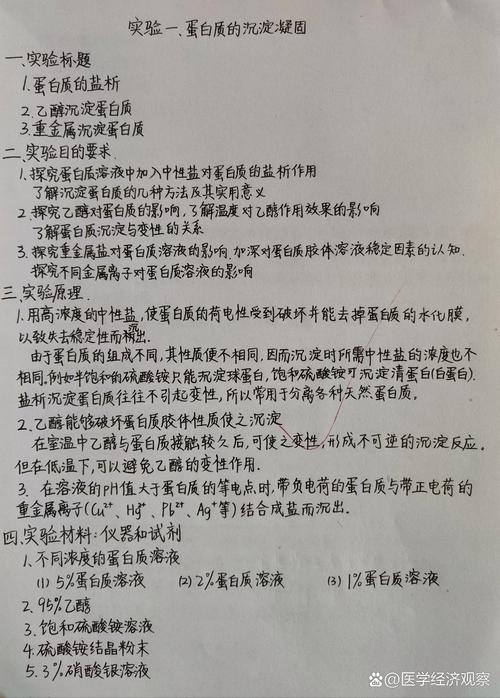 实验一、蛋白质的沉淀凝固
一.实验标题
1.蛋白质的盐析
2.乙醇沉淀蛋白质
3.重金属沉淀蛋白质
二.实验目的要求.
1.探究蛋白质溶液中加入中性盐对蛋白质的盐析作用
了解沉淀蛋白质的几种方法及其实用意义
2.探究乙醇对蛋白质的影响,了解温度对乙醇作用效果的影响
了解蛋白质沉淀与变性的关系
3.探究重金属盐对蛋白质溶液的影响.加深对蛋白质胶体溶液稳定因素的认知.
探究不同金属离子对蛋白质溶液的影响
三.实验原理.
1.用高浓度的中性盐,使蛋白质的荷电性受到破坏并能去掉蛋白质的水化膜,
以致失去稳定性而析出.
由于蛋白质的组成不同,其性质便不相同,因而沉淀时所需中性盐的浓度也不
相同.例如半饱和的硫酸铵只能沉淀球蛋白,饱和硫酸铵可沉淀清蛋白(白蛋白).
盐析沉淀蛋白质往往不引起变性,所以常用于分离各种天然蛋白质.
2.乙醇能够破坏蛋白质胶体性质使之沉淀
在室温中乙醇与蛋白质接触较久后,可使之变性,形成不可逆的沉淀反应.
但在低温下,可以避免乙醇的变性作用.
3.在溶液的pH值大于蛋白质的等电点时,带负电荷的蛋白质与带正电荷的
重金属离子(Cu²⁺、Hg²⁺、Pb²⁺、Ag⁺等)结合成盐而沉出.
四.实验材料:仪器和试剂
1.不同浓度的蛋白质溶液
(1) 5%蛋白质溶液 (2) 2%蛋白质溶液 (3) 1%蛋白质溶液
2.95%乙醇
3.饱和硫酸铵溶液
4.硫酸铵结晶粉末
5.3%硝酸银溶液
@医学经济观察